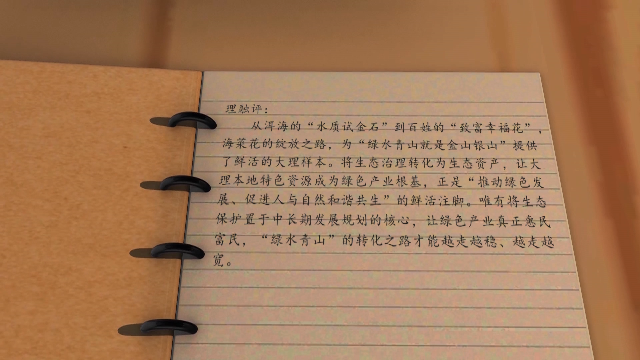 理融评：
从洱海的“水质试金石”到百姓的“致富幸福花”，
海菜花的绽放之路，为“绿水青山就是金山银山”提供
了鲜活的大理样本。将生态治理转化为生态资产，让大
理本地特色资源成为绿色产业根基，正是“推动绿色发
展、促进人与自然和谐共生”的鲜活注脚。唯有将生态
保护置于中长期发展规划的核心，让绿色产业真正惠民
富民，“绿水青山”的转化之路才能越走越稳、越走越
宽。